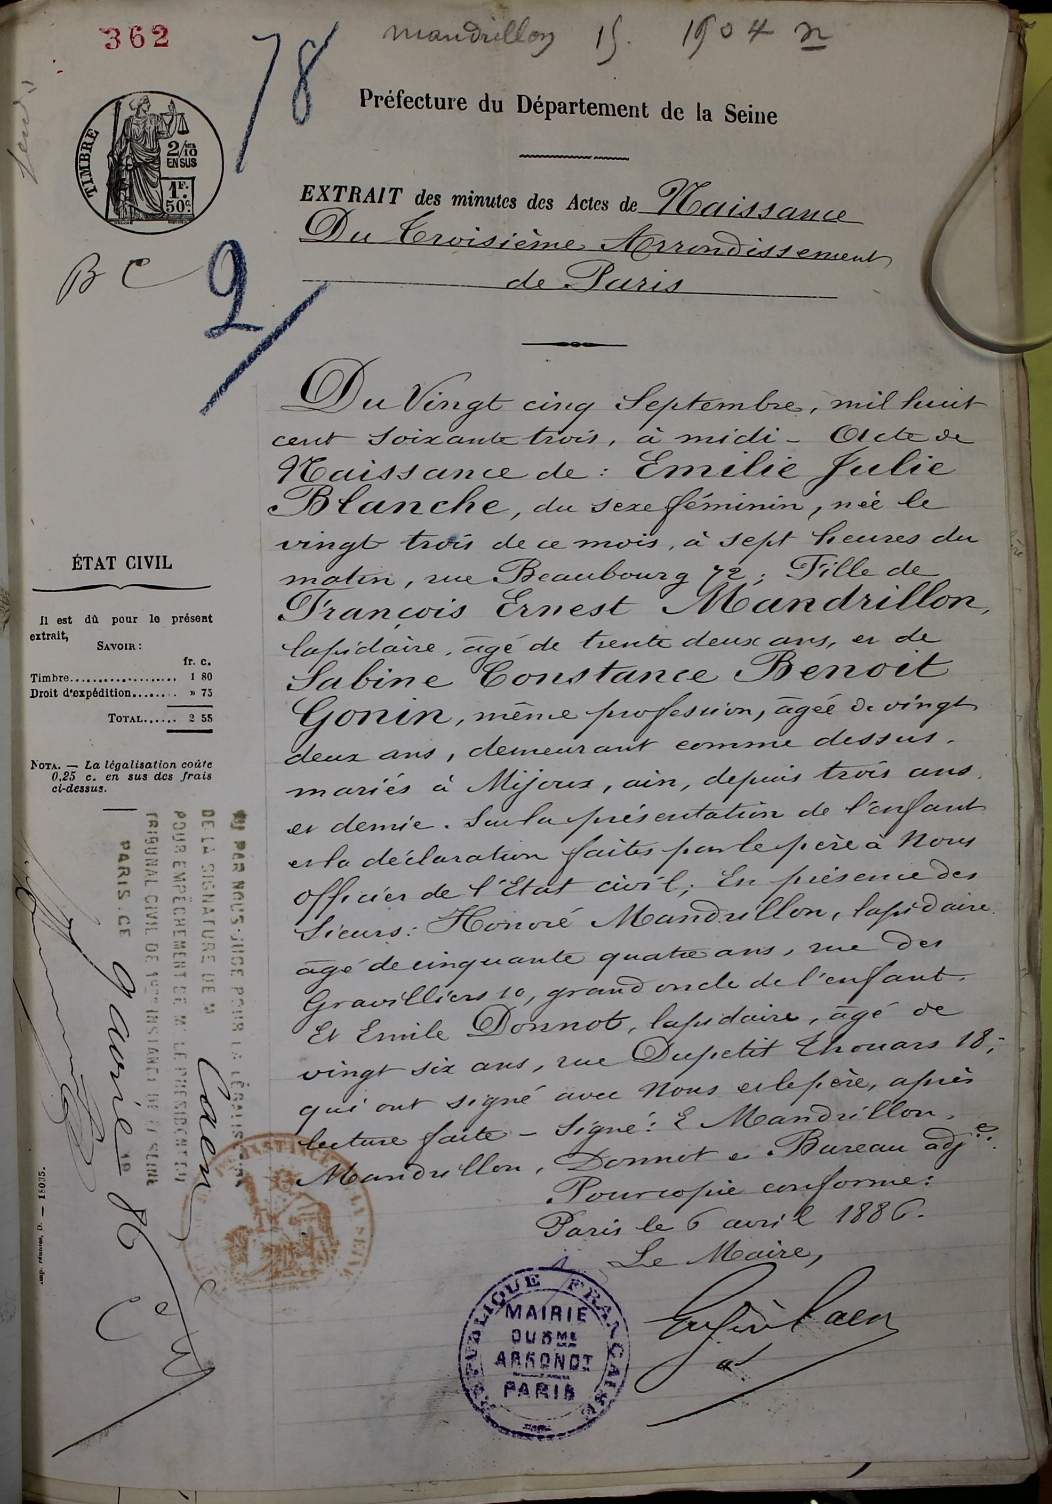 362
78
mandrillon 15. 1904 n
Préfecture du Département de la Seine
TIMBRE
2/10 EN SUS
1F. 50c.
EXTRAIT des minutes des Actes de Naissance
Du Troisième Arrondissement
de Paris
B C
2
Du Vingt cinq Septembre, mil huit
cent soixante trois, à midi - Acte de
Naissance de : Emilie Julie
Blanche, du sexe féminin, née le
vingt trois de ce mois, à sept heures du
matin, rue Beaubourg 72 ; Fille de
François Ernest Mandrillon,
lapidaire, âgé de trente deux ans, et de
Sabine Constance Benoit
Gonin, même profession, âgée de vingt
deux ans, demeurant comme dessus.
mariés à Mijoux, ain, depuis trois ans
et demie. Sur la présentation de l'enfant
et la déclaration faites par le père à Nous
officier de l'Etat civil ; En présence des
Sieurs : Honoré Mandrillon, lapidaire
âgé de cinquante quatre ans, rue des
Gravilliers 10, grand oncle de l'enfant.
Et Emile Donnot, lapidaire, âgé de
vingt six ans, rue Dupetit Thouars 18 ;
qui ont signé avec Nous et le père, après
lecture faite - Signé : E Mandrillon.
Mandrillon, Donnot et Bureau adj
Pour copie conforme :
Paris le 6 avril 1886.
Le Maire,
ÉTAT CIVIL
Il est dû pour le présent
extrait,
SAVOIR :
fr. c.
Timbre.................. 1 80
Droit d'expédition........ » 75
TOTAL...... 2 55
NOTA. — La légalisation coûte
0,25 c. en sus des frais
ci-dessus.
VU PAR NOUS JUGE POUR LA LÉGALISATION
DE LA SIGNATURE DE M Caen
POUR EMPÊCHEMENT DE M. LE PRESIDENT DU
TRIBUNAL CIVIL DE 1re INSTANCE DE LA SEINE
PARIS, CE 9 avril 1886
RÉPUBLIQUE FRANÇAISE
MAIRIE
DU 3ME
ARRONDT
PARIS